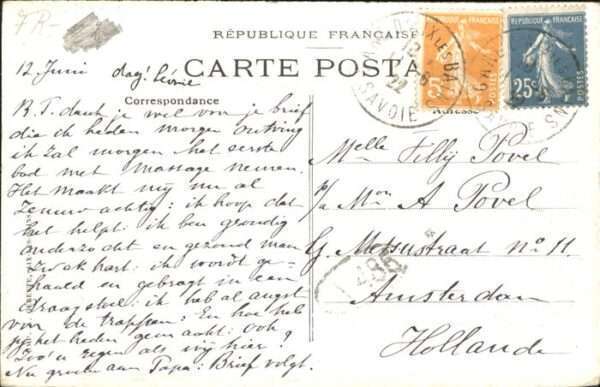 FR-
RÉPUBLIQUE FRANÇAISE
CARTE POSTA
Correspondance
Adresse
12 Juni dag! Lévrie
B.T. dank je wel voor je brief
die ik heden morgen ontving
ik zal morgen het eerste
bad met massage nemen.
Het maakt mij nu al
zenuwachtig: ik hoop dat
het helpt: ik ben grondig
onderzocht en gezond maar
zwak hart: ik wordt ge-
haald en gebragt in een
draagstoel: ik heb al angst
van de trappen: En hoe heb
je het heden gemaakt: ook
zoo'n regen als wij hier?
Nu groeten aan Papa: Brief volgt.
Melle Tilly Povel
p/a Mon A Povel
G. Metsustraat No 11.
Amsterdam
Hollande
AIX-les-BAINS
SAVOIE
12 -6
22
25c
POSTES